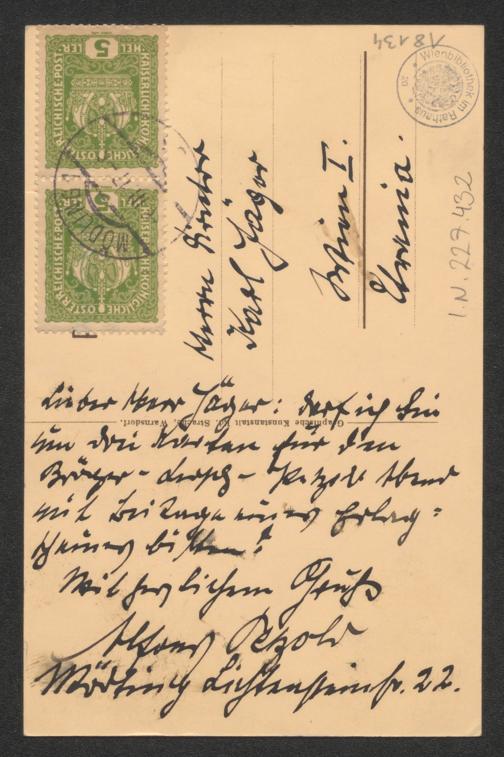 Herrn Direktor
Karl Jäger
Wien I.
Urania.
Lieber Herr Jäger: darf ich Sie
um drei Karten für den
Bröger-Lersch-Petzold Abend
mit Beilage eines Erlag=
scheines bitten?
Mit herzlichem Gruß
Alfons Petzold
Mödling Lichtensteinstr. 22.
Graphische Kunstanstalt Ed. Strache, Warnsdorf.
KAISERLICHE KÖNIGLICHE ÖSTERREICHISCHE POST
5 HELLER
KAISERLICHE KÖNIGLICHE ÖSTERREICHISCHE POST
5
MÖDLING
Wienbibliothek im Rathaus
18134
I.N. 229.432